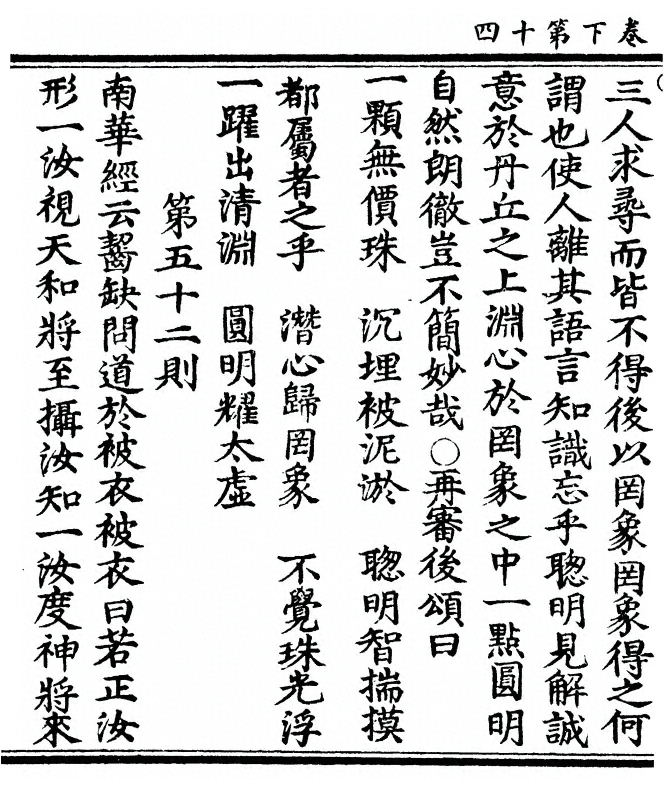 卷下第十四
三人求尋而皆不得後以罔象罔象得之何
謂也使人離其語言知識忘乎聰明見解誠
意於丹丘之上淵心於罔象之中一點圓明
自然朗徹豈不簡妙哉○再審後頌曰
一顆無價珠　沉埋被泥淤　聰明智揣摸
都屬者之乎　潛心歸罔象　不覺珠光浮
一躍出清淵　圓明耀太虛
第五十二則
南華經云齧缺問道於被衣被衣曰若正汝
形一汝視天和將至攝汝知一汝度神將來